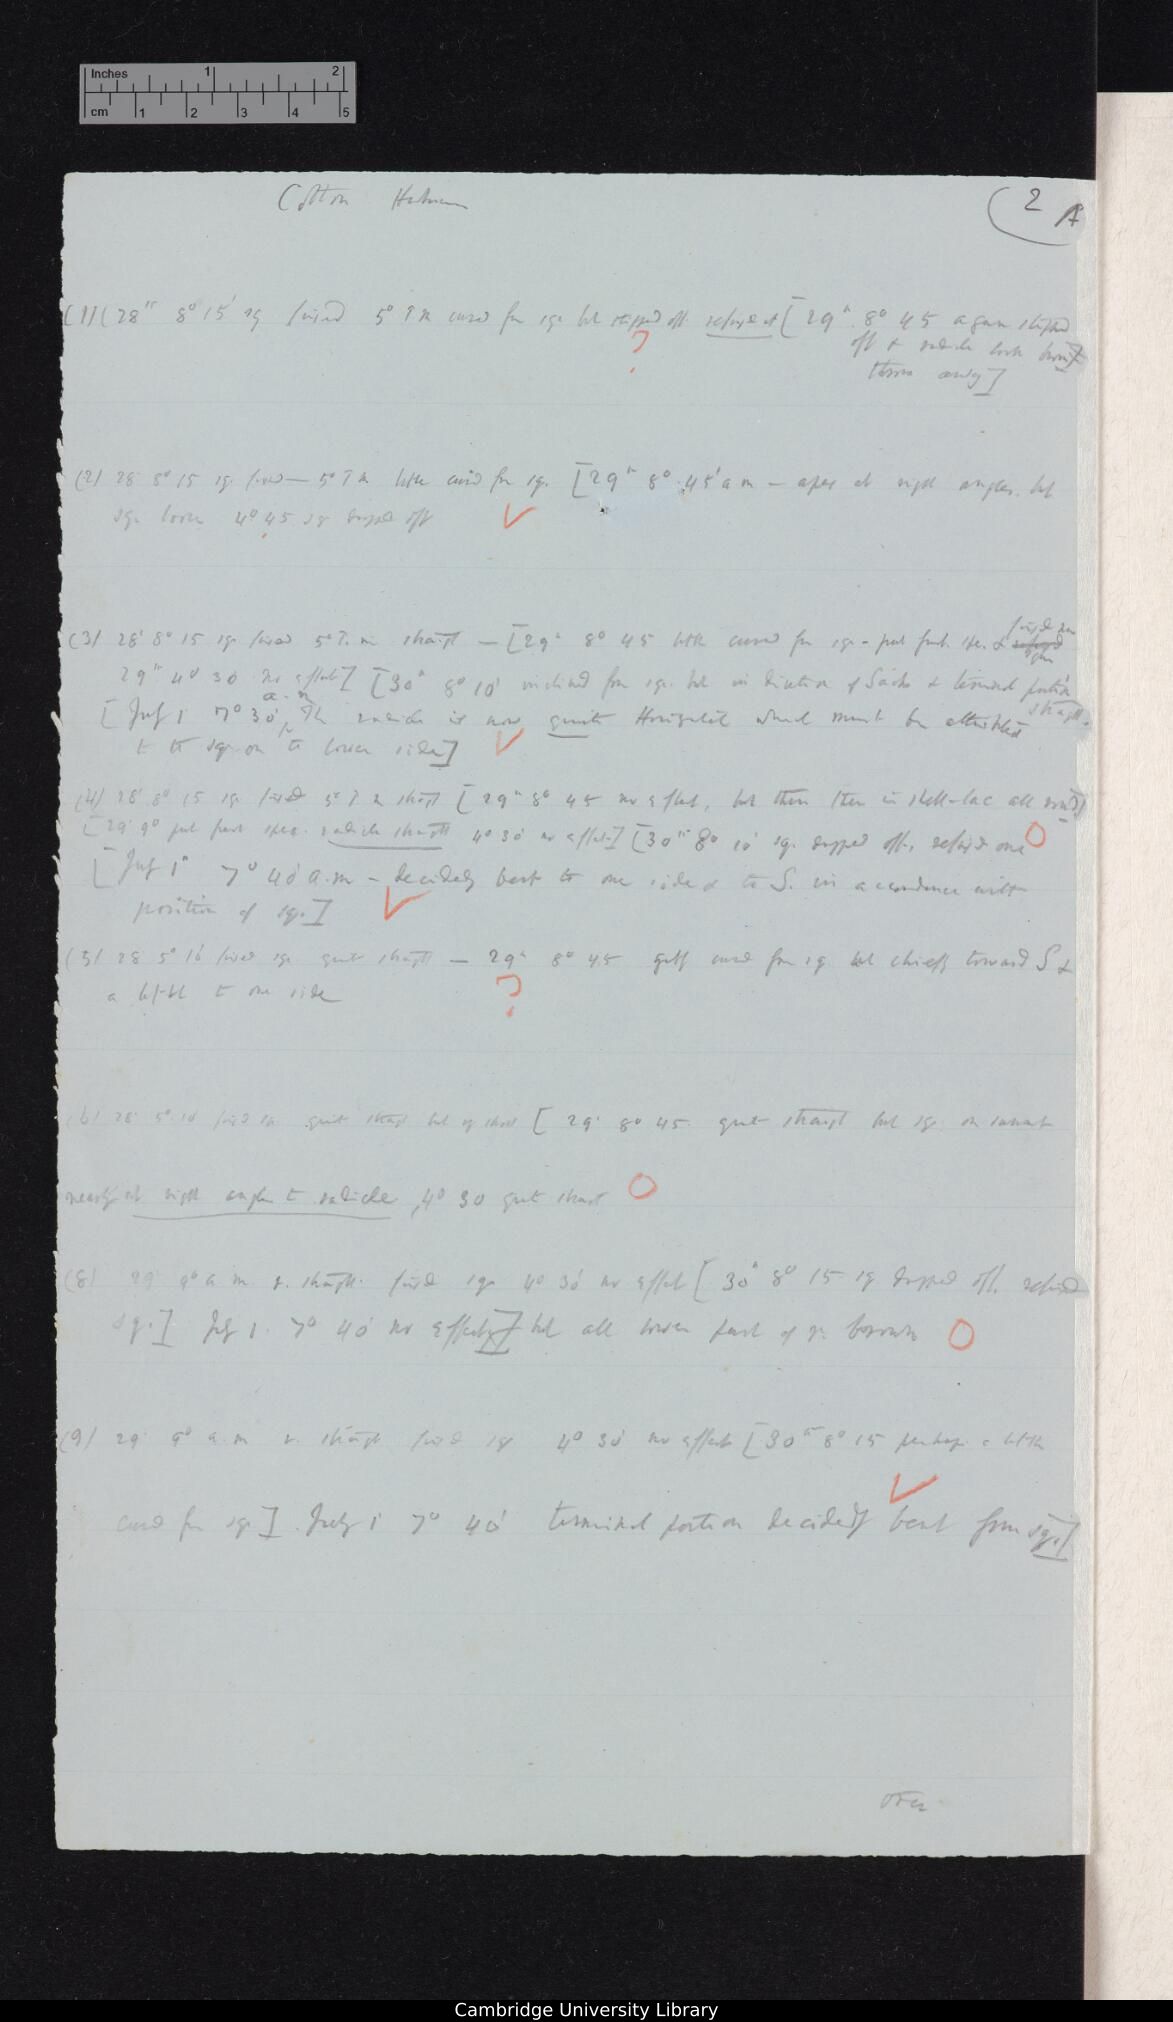 Inches 1 2
cm 1 2 3 4 5
Cotton
2 A
(1) (28th 8° 15' sq fixed 5° P m curved from sq. but slipped off. refixed it [29th 8° 45 again slipped
off & radicle look brown]
thrown away]
?
(2) 28 8° 15 sq. fixed — 5° P m little curved from sq. [29th 8° 45' a m — apex at right angles, but
sq. loose 4° 45 sq dropped off
(3) 28' 8° 15 sq. fixed 5° P. m. straight — [29th 8° 45 little curved from sq. - put fresh &
29th 4° 30 no effect] [30th 8° 10' inclined from sq. but in direction of Sachs & terminal portion
straight.
a.m
[July 1 7° 30', The radicle is now quite Horizontal which must be attributed
to the sq. on the lower side]
(4) 28' 8° 15 sq fixed 5° P m straight [29th 8° 45 no effect, but then in shell-lac all round]
[29' 9° put fresh spec. radicle straight 4° 30' no effect] [30th 8° 10' sq. dropped off, refixed one
[July 1st 7° 40' a.m — decidedly bent to one side & to S. in accordance with
position of sq.]
(5) 28 5° 10' fixed sq. quite straight — 29th 8° 45 curved from sq but chiefly toward S &
a little to one side
?
(6) 28 5° 10' fixed quite straight but [29' 8° 45. quite straight but sq. on summit
nearly at right angles to radicle, 4° 30 quite straight
(8) 29' 9° a. m. r. straight. fixed sq. 4° 30' no effect [30th 8° 15 sq dropped off. refixed
sq.] July 1. 7° 40' no effect] but all lower part of r. brown
(9) 29' 9° a. m r. straight fixed sq 4° 30' no effect [30th 8° 15 perhaps a little
curved from sq.] July 1' 7° 40' terminal portion decidedly bent from sq.]
over
Cambridge University Library